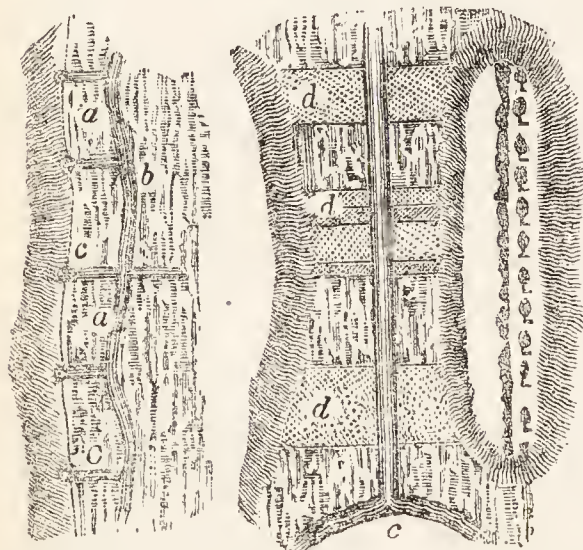 a
b
c
a
C
d
d
d
c